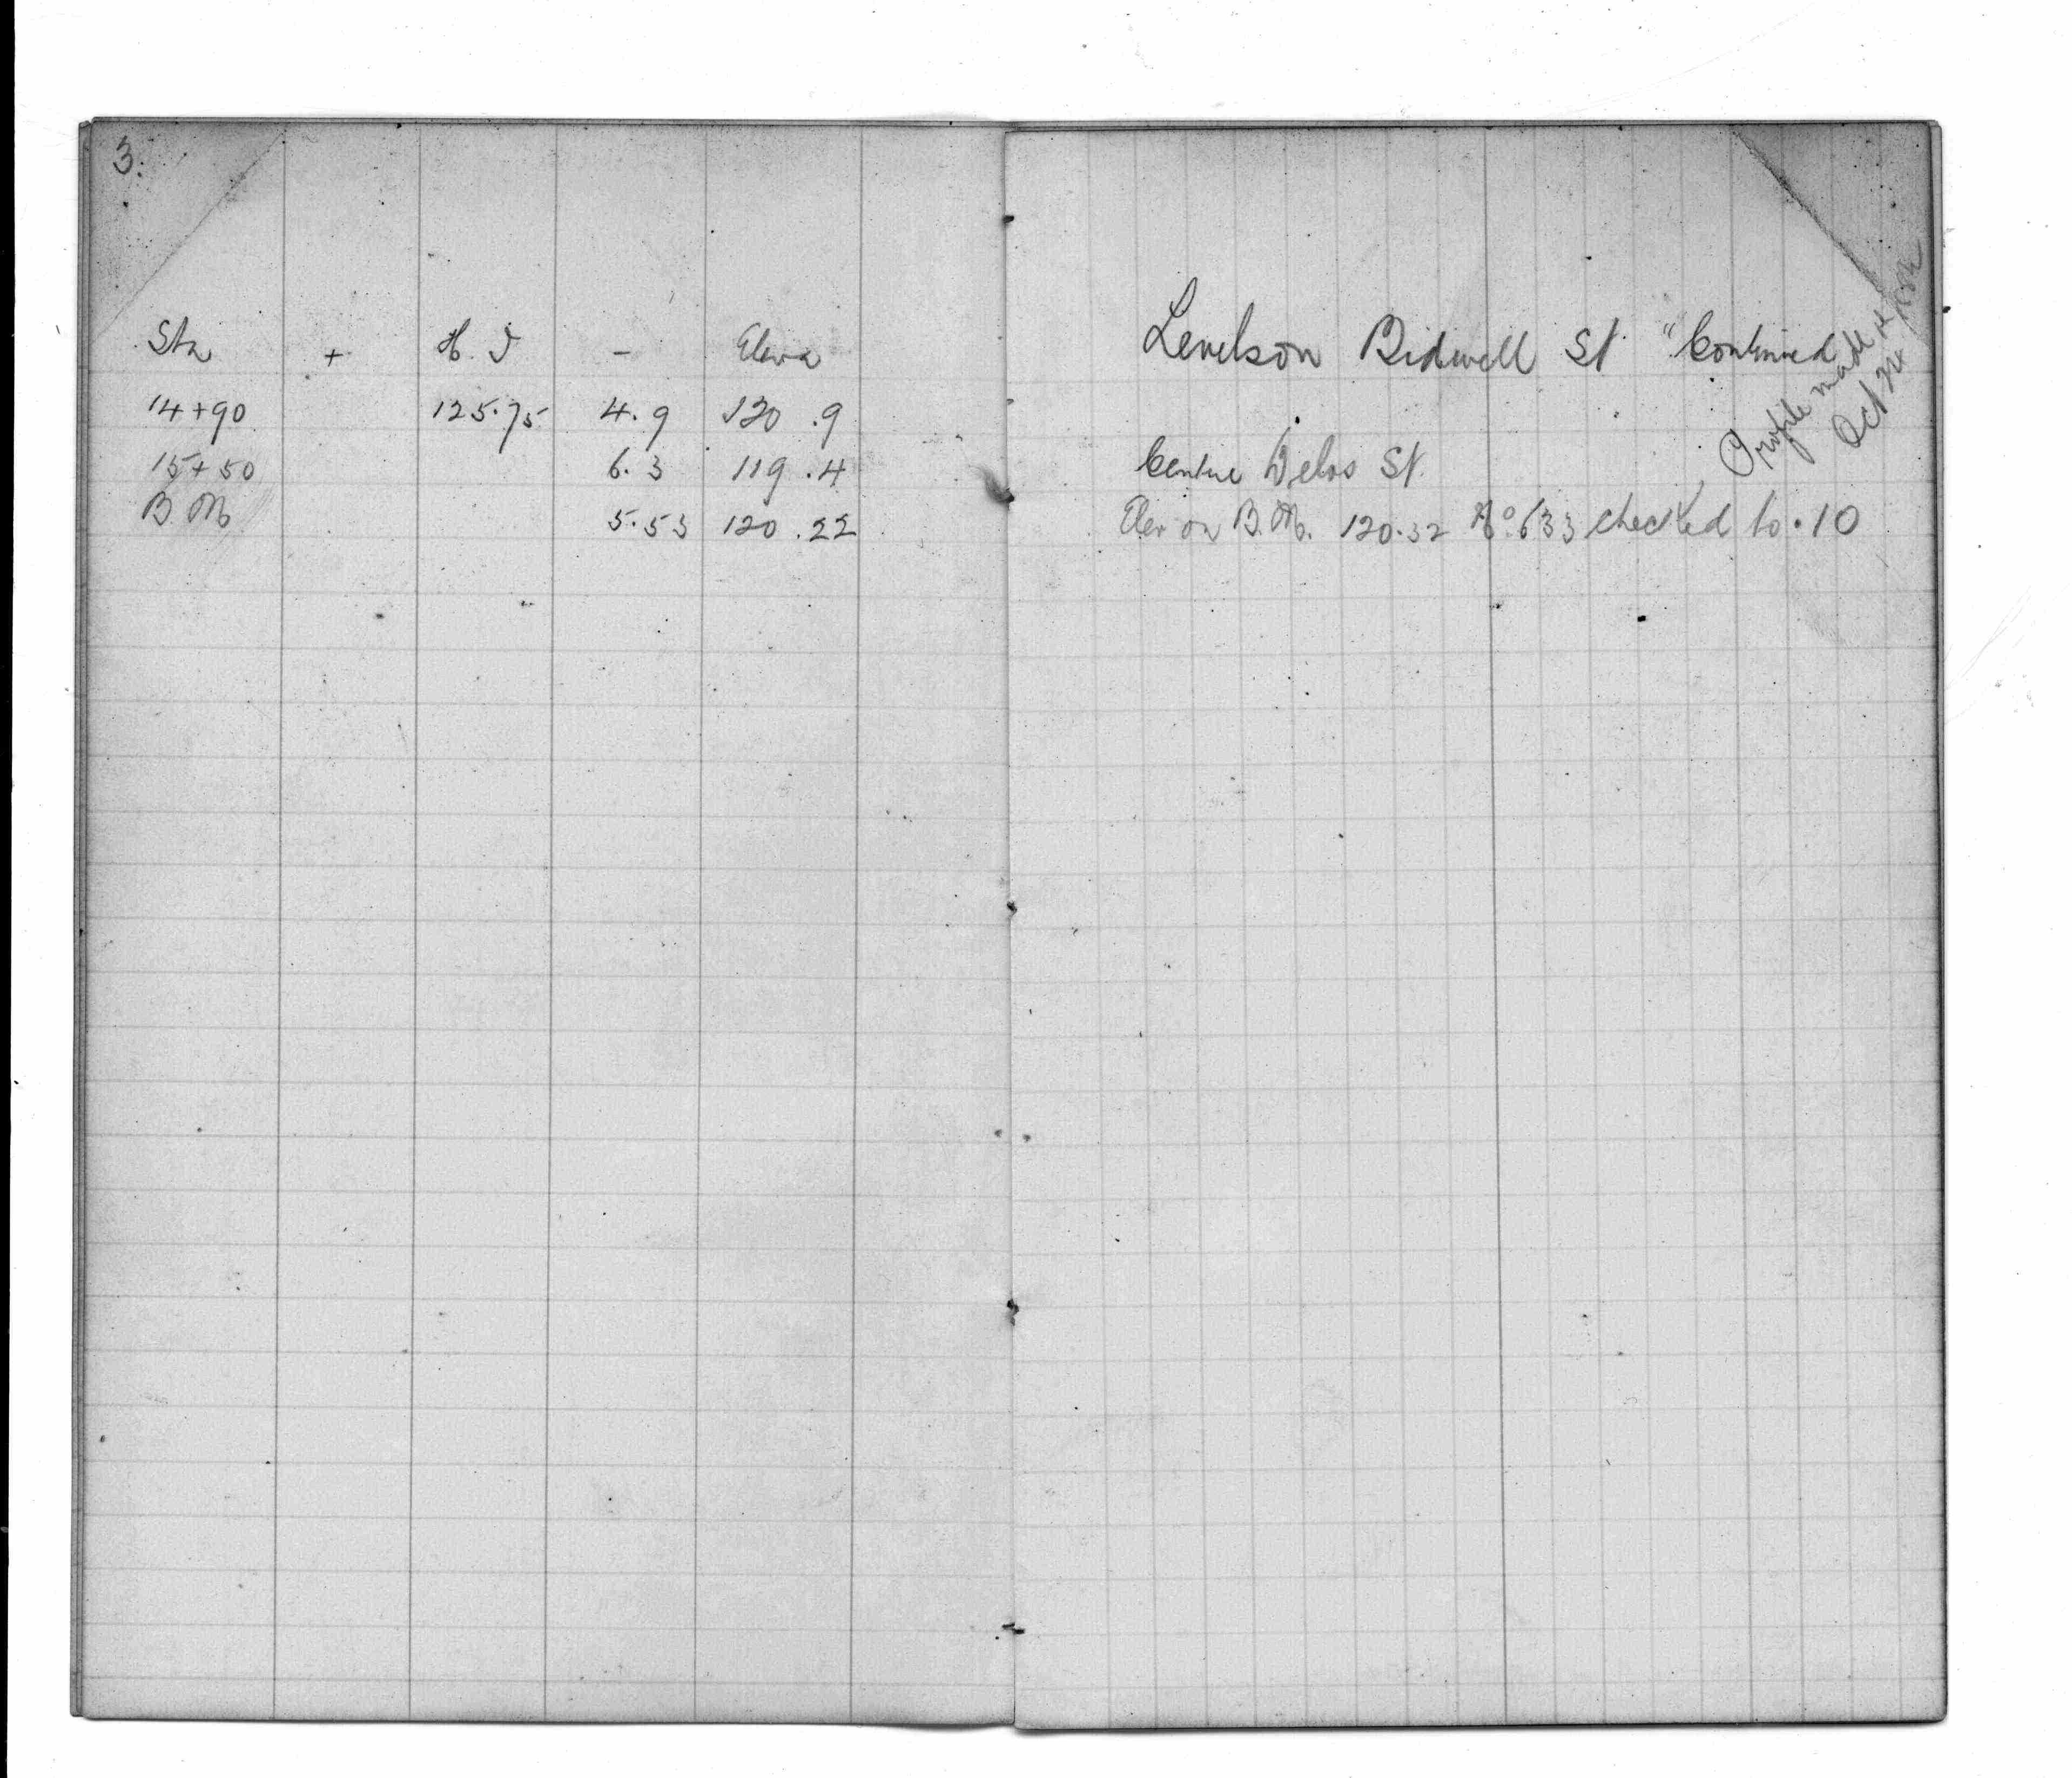 3.
Sta + H. I - Eleva
14+90 125.75 4.9 120 .9
15+50 6.3 119 .4
B.M. 5.53 120 .22
Levels on Bidwell St "Continued
Profile made
Oct
Centre Delos St.
Elev on B.M. 120.32 No 633 checked to .10